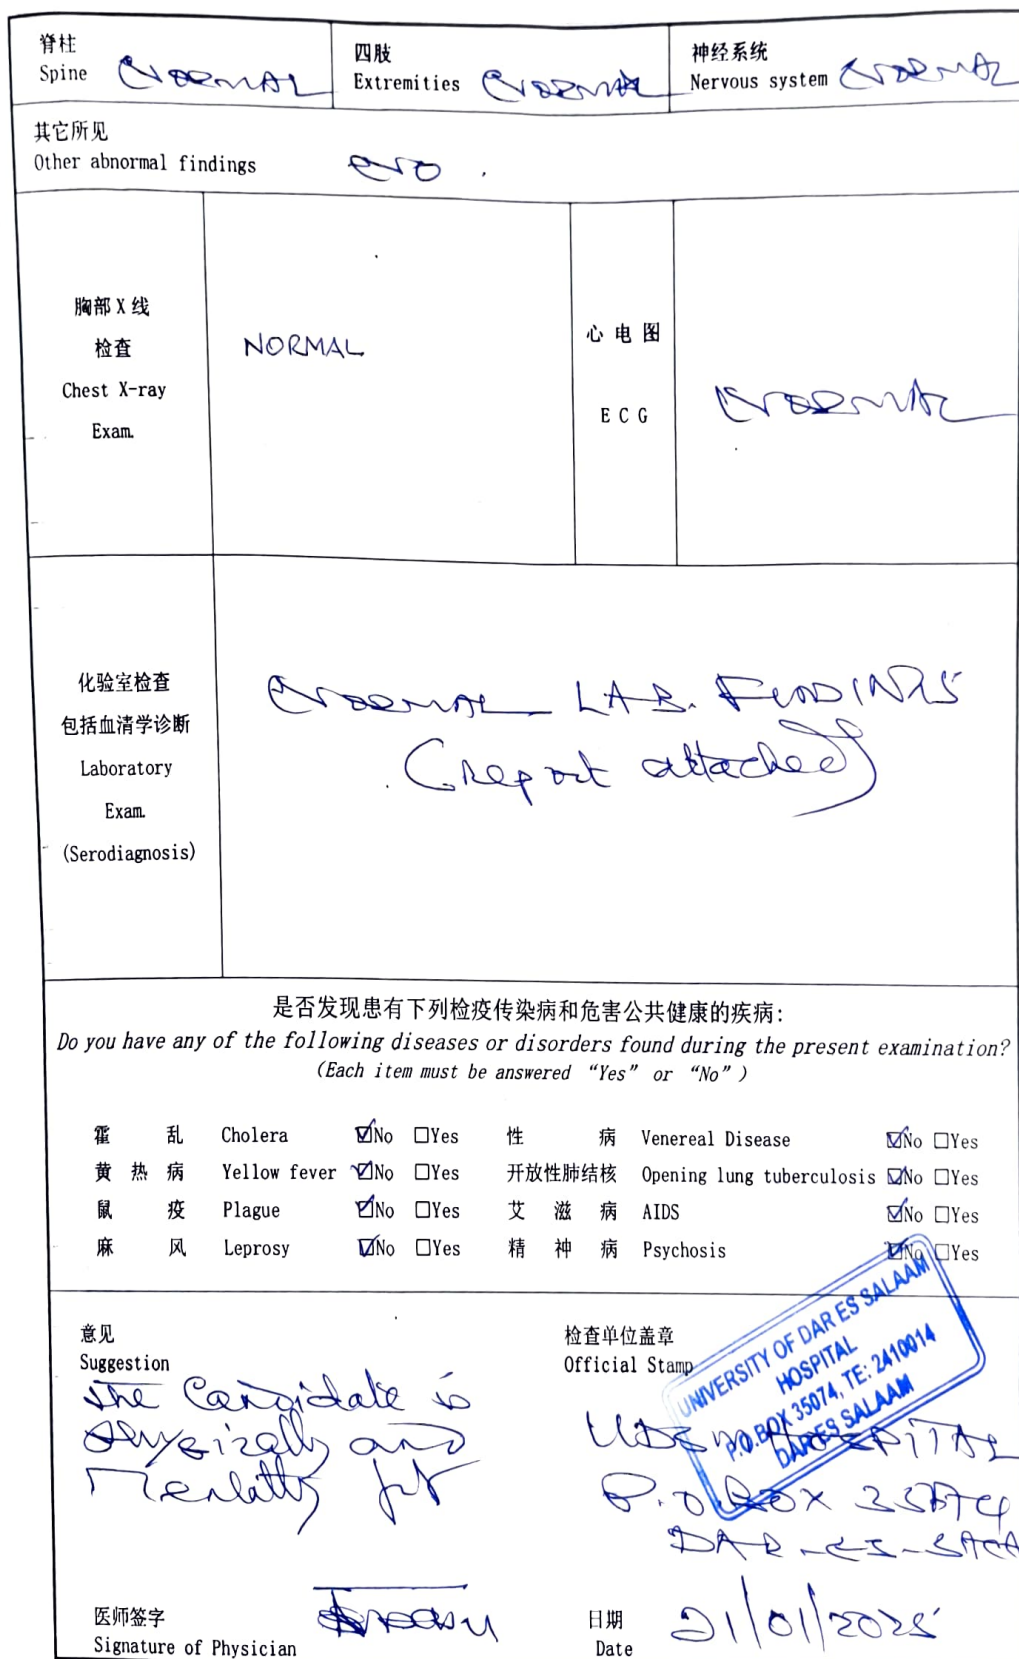 脊柱 四肢 神经系统
Spine NORMAL Extremities NORMAL Nervous system NORMAL
其它所见
Other abnormal findings NO .
胸部 X 线
检查
Chest X-ray
Exam.
NORMAL
心 电 图
E C G
NORMAL
化验室检查
包括血清学诊断
Laboratory
Exam.
(Serodiagnosis)
NORMAL LAB. FINDINGS
(report attached)
是否发现患有下列检疫传染病和危害公共健康的疾病:
Do you have any of the following diseases or disorders found during the present examination?
(Each item must be answered “Yes” or “No”)
霍 乱 Cholera ☑No ☐Yes 性 病 Venereal Disease ☑No ☐Yes
黄 热 病 Yellow fever ☑No ☐Yes 开放性肺结核 Opening lung tuberculosis ☑No ☐Yes
鼠 疫 Plague ☑No ☐Yes 艾 滋 病 AIDS ☑No ☐Yes
麻 风 Leprosy ☑No ☐Yes 精 神 病 Psychosis ☑No ☐Yes
意见
Suggestion
The Candidate is
Physically and
Mentally fit
检查单位盖章
Official Stamp
UNIVERSITY OF DAR ES SALAAM
HOSPITAL
P.O.BOX 35074, TE: 2410014
DAR ES SALAAM
UDSM HOSPITAL
P.O BOX 35074
DAR-ES-SALA
医师签字
Signature of Physician
日期
Date 21/01/2025